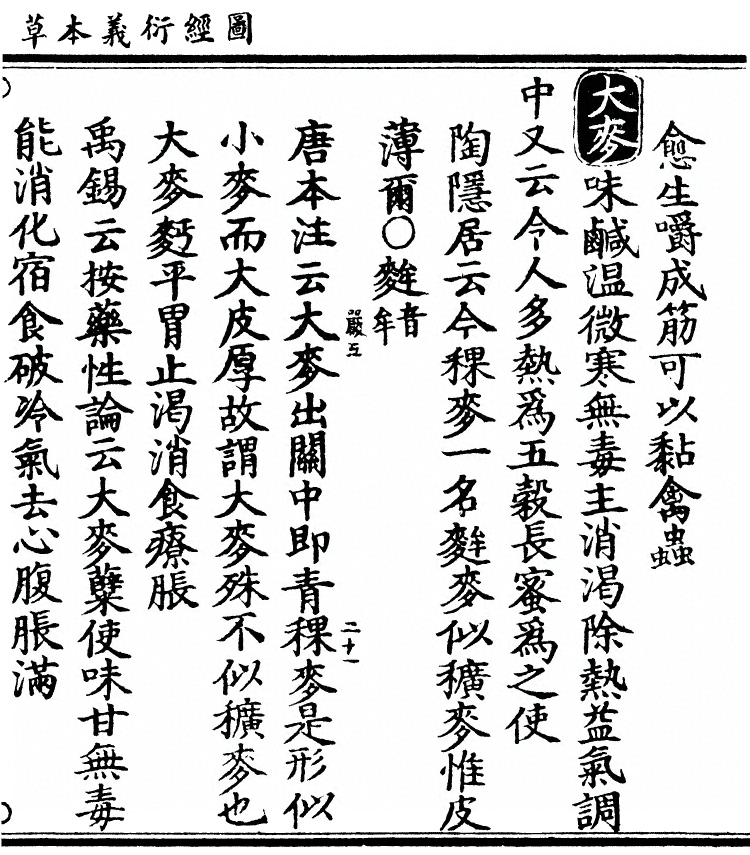 圖經衍義本草
愈生嚼成筋可以黏禽蟲
大麥味鹹溫微寒無毒主消渴除熱益氣調
中又云令人多熱爲五穀長蜜爲之使
陶隱居云今稞麥一名麰麥似穬麥惟皮
薄爾〇麰音牟
嚴五
二十一
唐本注云大麥出關中即青稞麥是形似
小麥而大皮厚故謂大麥殊不似穬麥也
大麥麪平胃止渴消食療脹
禹錫云按藥性論云大麥糵使味甘無毒
能消化宿食破冷氣去心腹脹滿